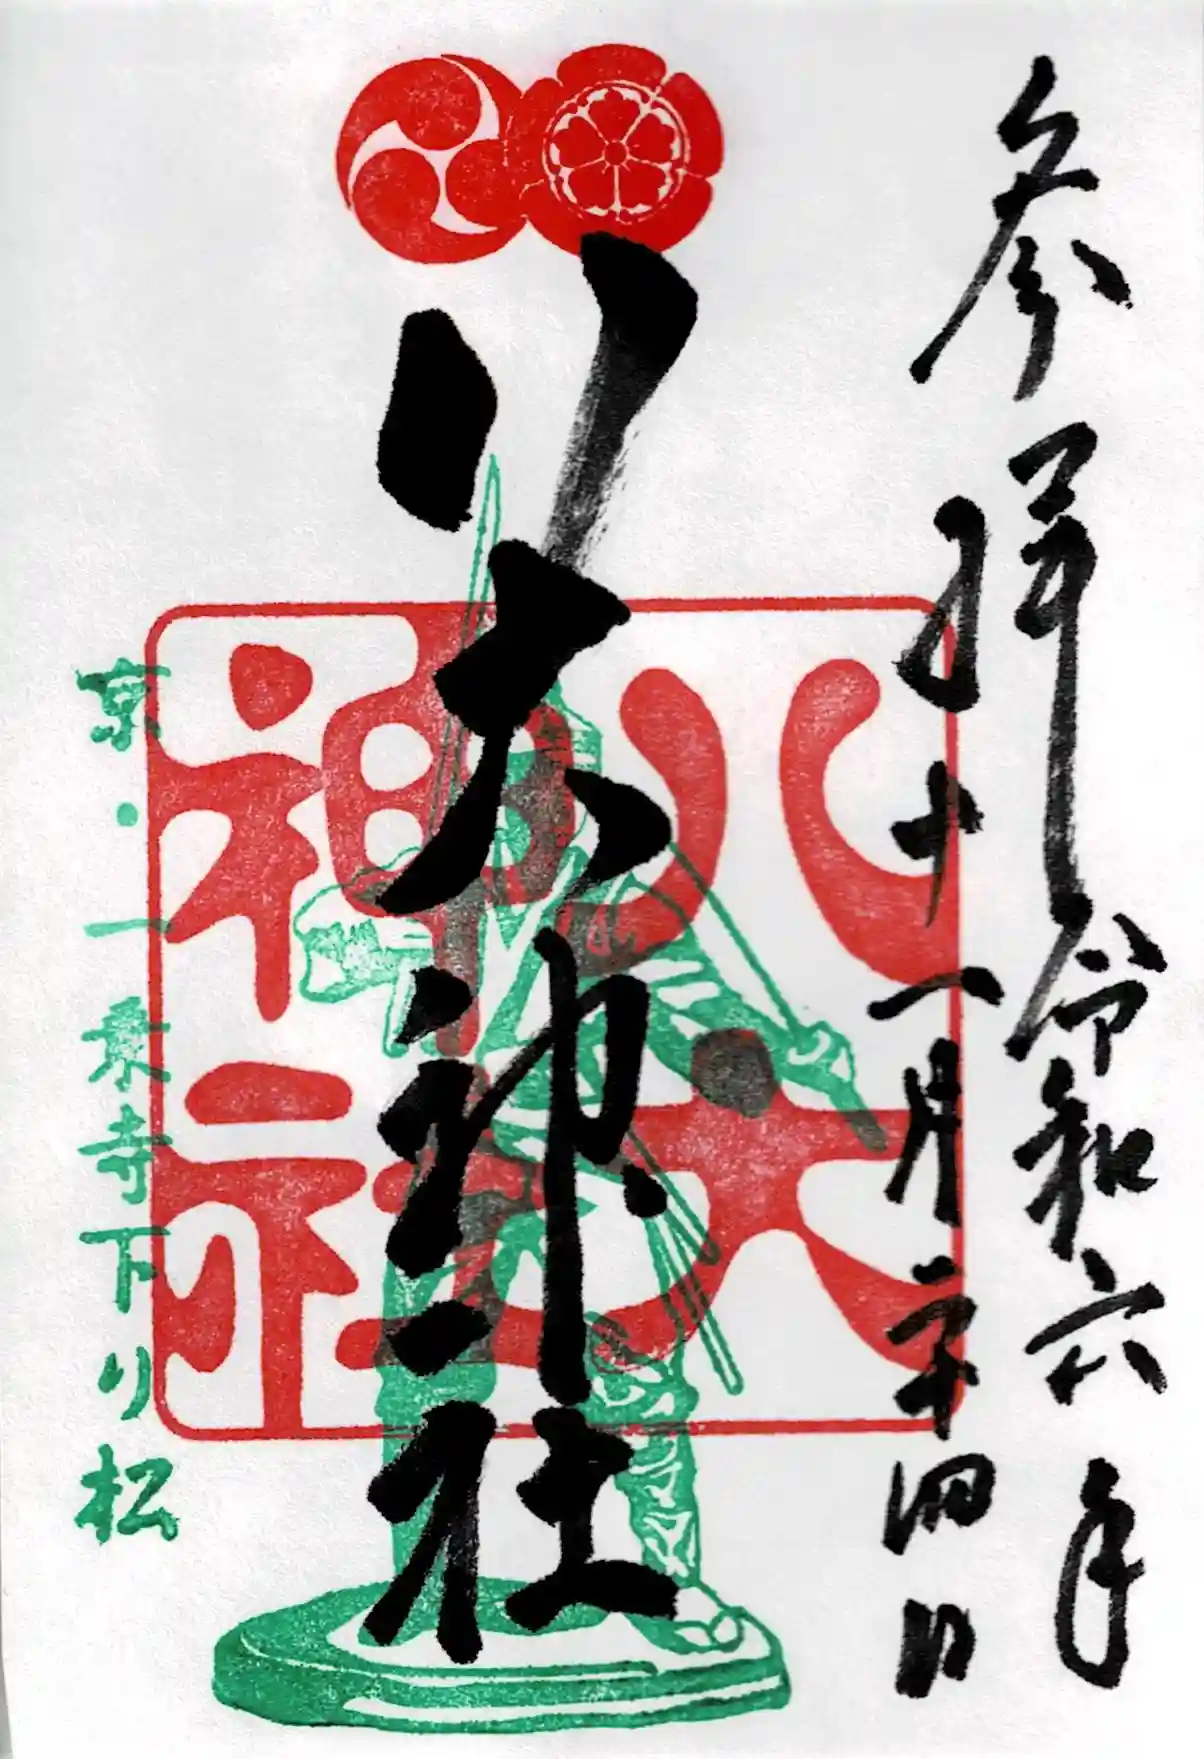 参拝 令和六年
十一月二十四日
八大神社
八大
神社
京・一乗寺下り松